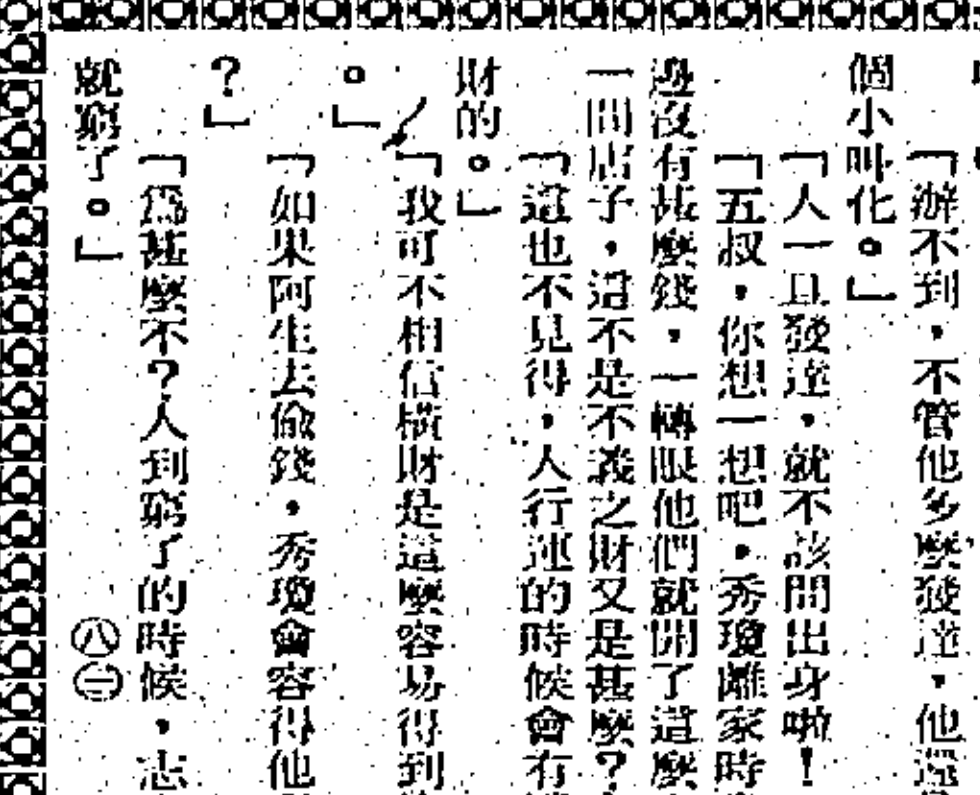 「辦不到，不管他多麼發達，他還
個小叫化。」
「人一旦發達，就不該問出身啦！
「五叔，你想一想吧，秀瓊離家時
邊沒有甚麼錢，一轉眼他們就開了這麼
一間店子，這不是不義之財又是甚麼？
「這也不見得，人行運的時候會有
財的。」
「我可不相信橫財是這麼容易得到
。」
「如果阿生去偸錢，秀瓊會容得他
？」
「爲甚麼不？人到窮了的時候，志
就窮了。」 ㊇㊀